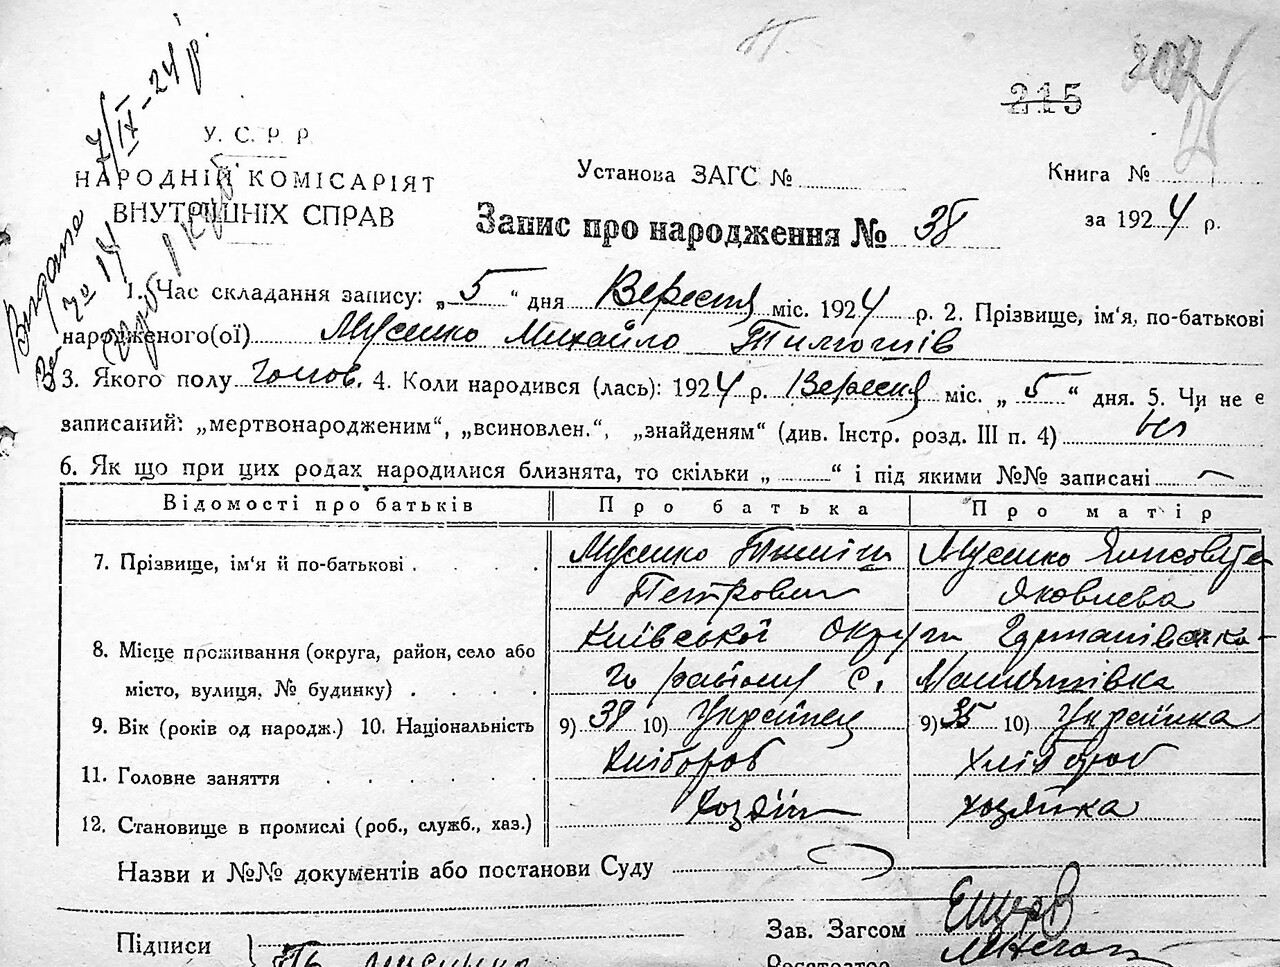 7/IX-24 р.
215
У. С. Р. Р.
НАРОДНІЙ КОМІСАРІЯТ
ВНУТРІШНІХ СПРАВ
Установа ЗАГС №
Книга №
Запис про народження № 38
за 1924 р.
1. Час складання запису: „5“ дня Вересня міс. 1924 р. 2. Прізвище, ім‘я, по-батькові
народженого(ої) Мусенко Михайло
3. Якого полу чолов. 4. Коли народився (лась): 1924 р. Вересня міс. „5“ дня. 5. Чи не є
записаний: „мертвонародженим“, „всиновлен.“, „знайденям“ (див. Інстр. розд. III п. 4)
6. Як що при цих родах народилися близнята, то скільки „ “ і під якими №№ записані
Відомості про батьків Про батька Про матір
7. Прізвище, ім‘я й по-батькові Мусенко Мусенко
Петрович Яковлева
Київської Округи
8. Місце проживання (округа, район, село або
місто, вулиця, № будинку) го району с.
9. Вік (років од народж.) 10. Національність 9) 38 10) Українец 9) 35 10) Українка
11. Головне заняття Хлібороб Хлібороб
12. Становище в промислі (роб., служб., хаз.) Хозяїн хозяйка
Назви и №№ документів або постанови Суду
Зав. Загсом
Підписи